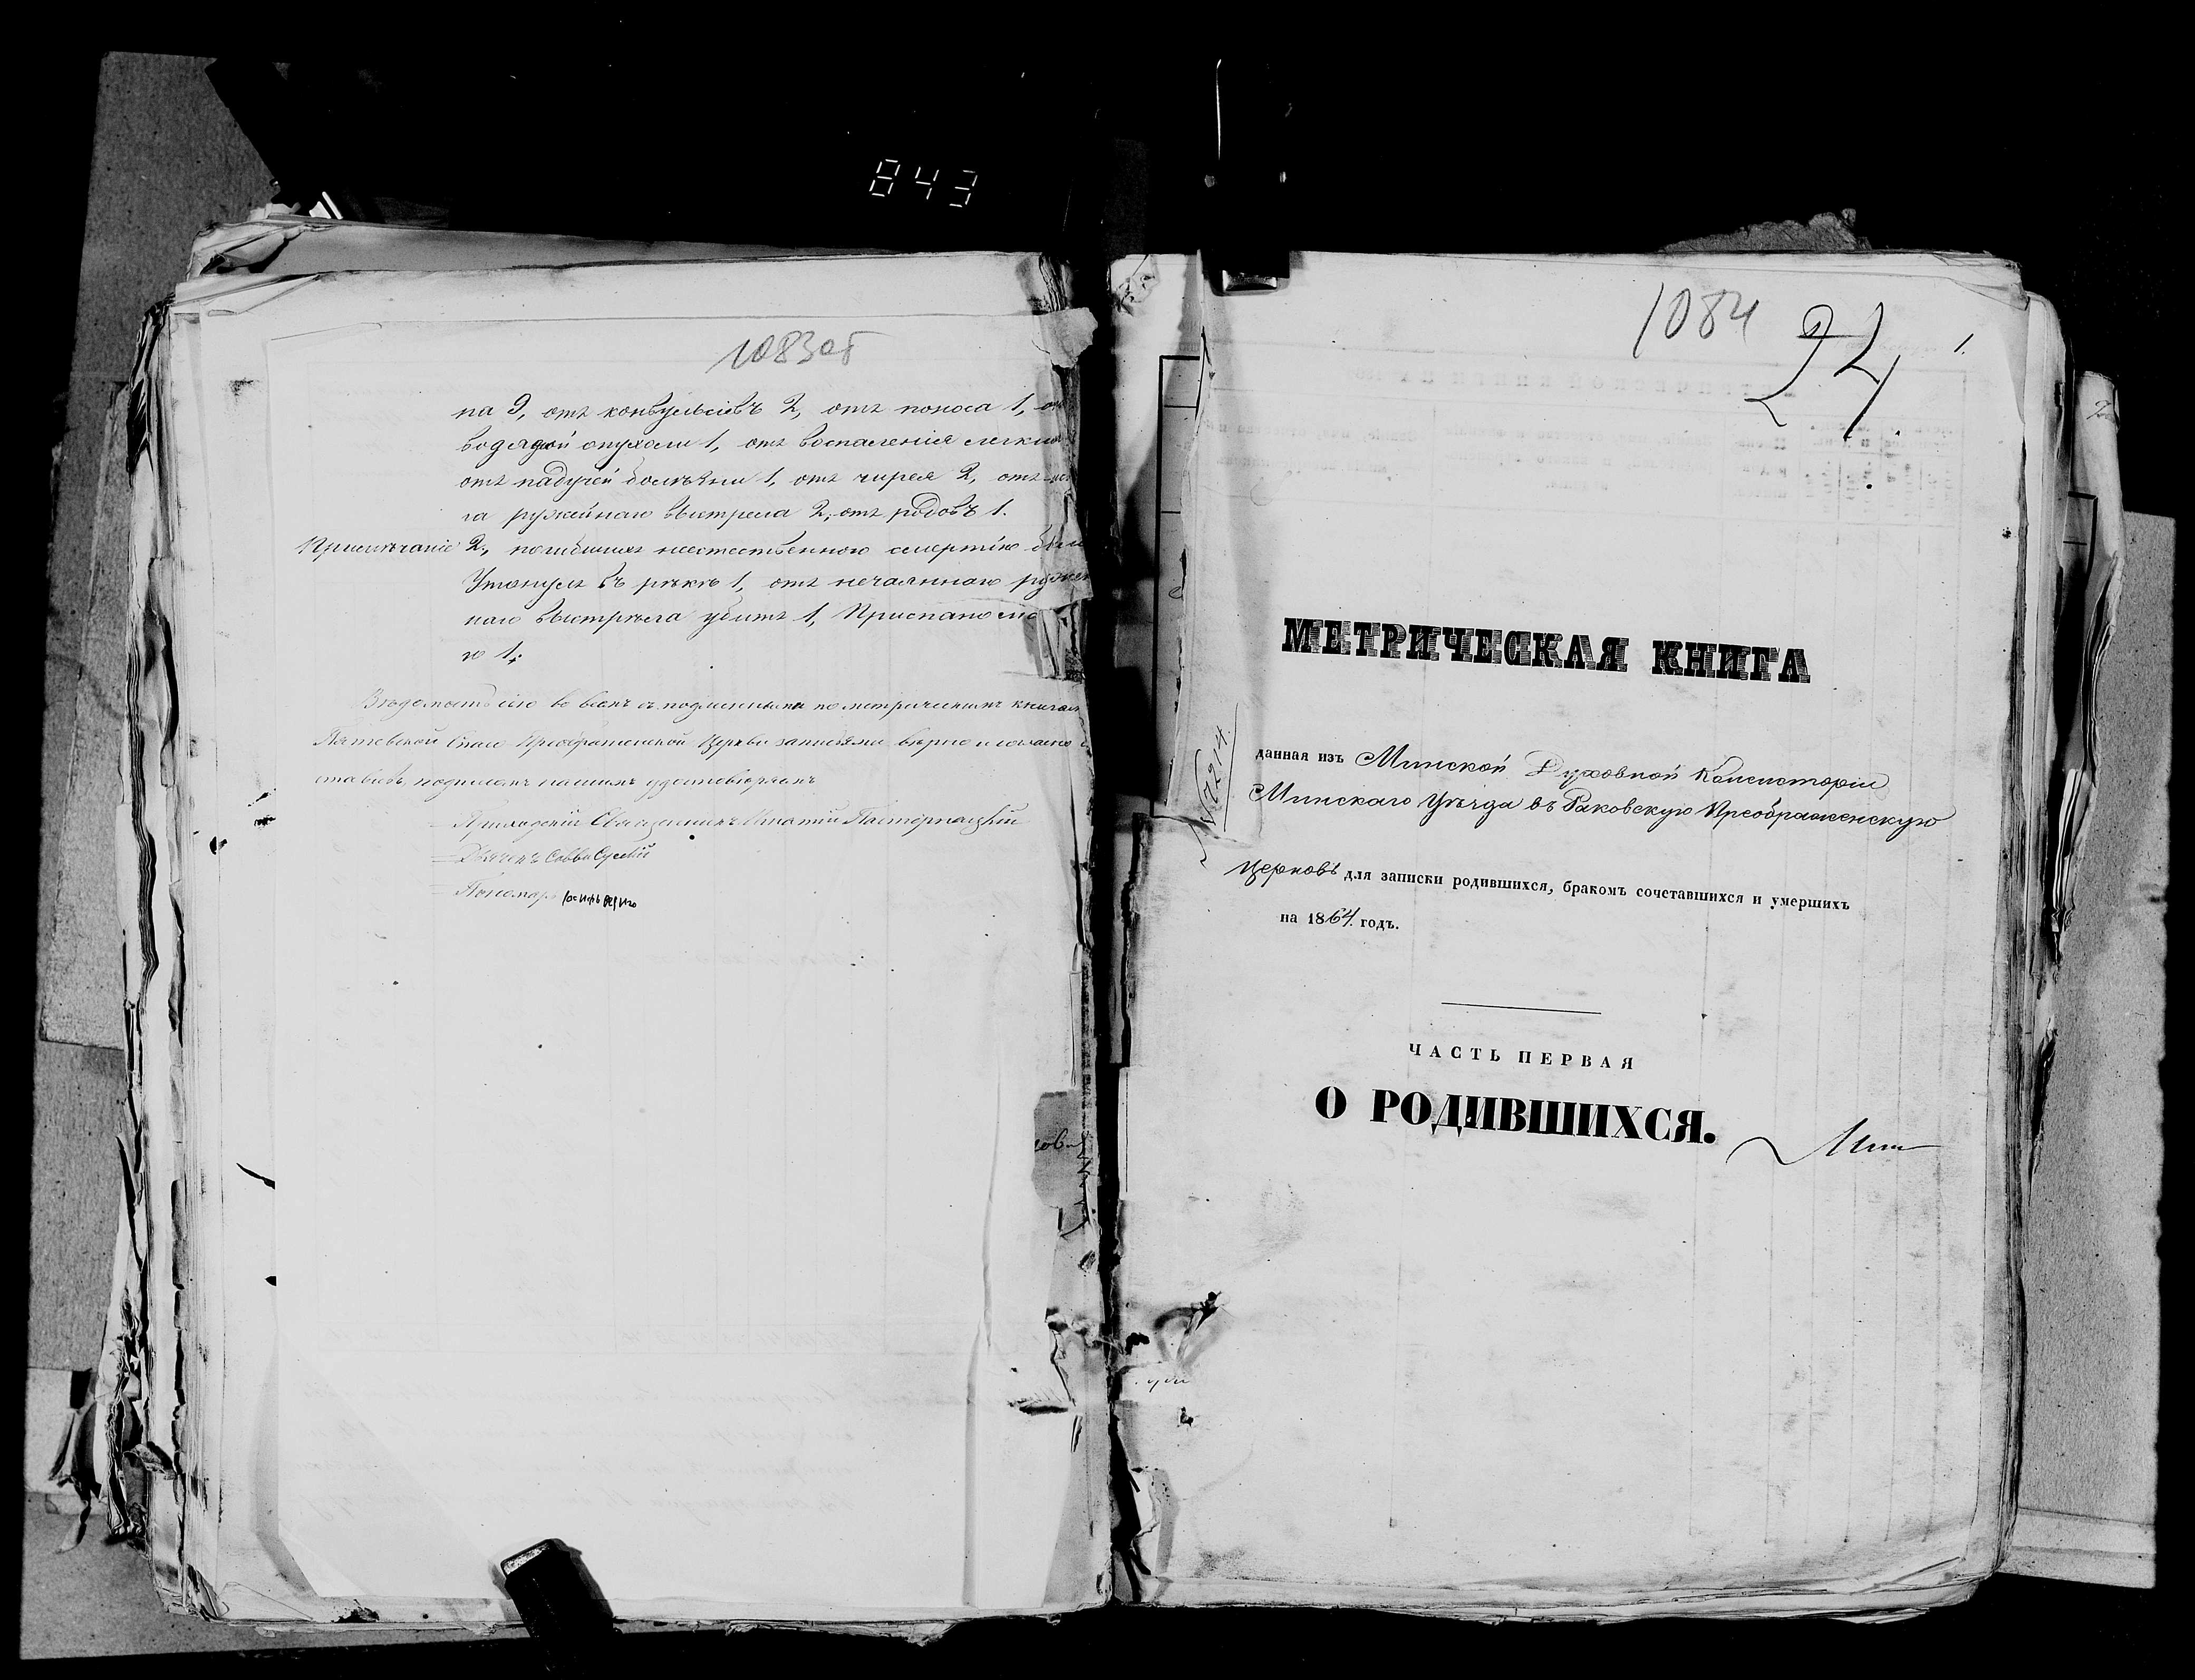 843
1083об
на 9, отъ конвульсіевъ 2, отъ поноса 1,
водяной опухоли 1, отъ воспаленія легкихъ
отъ падучей болѣзни 1, отъ чирея 2, отъ
га ружейнаго выстрела 2, отъ родовъ 1.
Примѣчаніе 2, погибшихъ неестественною смертію
Утонулъ въ рѣкѣ 1, отъ нечаяннаго ружей
наго выстрѣла убитъ 1, Приспано
1.
Вѣдомость сію во всемъ съ подлинными по метрическимъ книгамъ
Спасо Преображенской Церкви записями вѣрно и согласно
подписомъ нашимъ удостовѣряемъ
Приходскій Священникъ Игнатій Пастернацкій
Дьячекъ Савва
Пономарь
1084
24
1.
МЕТРИЧЕСКАЯ КНИГА
№7214.
данная изъ Минской Духовной Консисторіи
Минскаго Уѣзда въ Раковскую Преображенскую
Церковь для записки родившихся, бракомъ сочетавшихся и умершихъ
на 1864. годъ.
ЧАСТЬ ПЕРВАЯ
О РОДИВШИХСЯ.
Мин